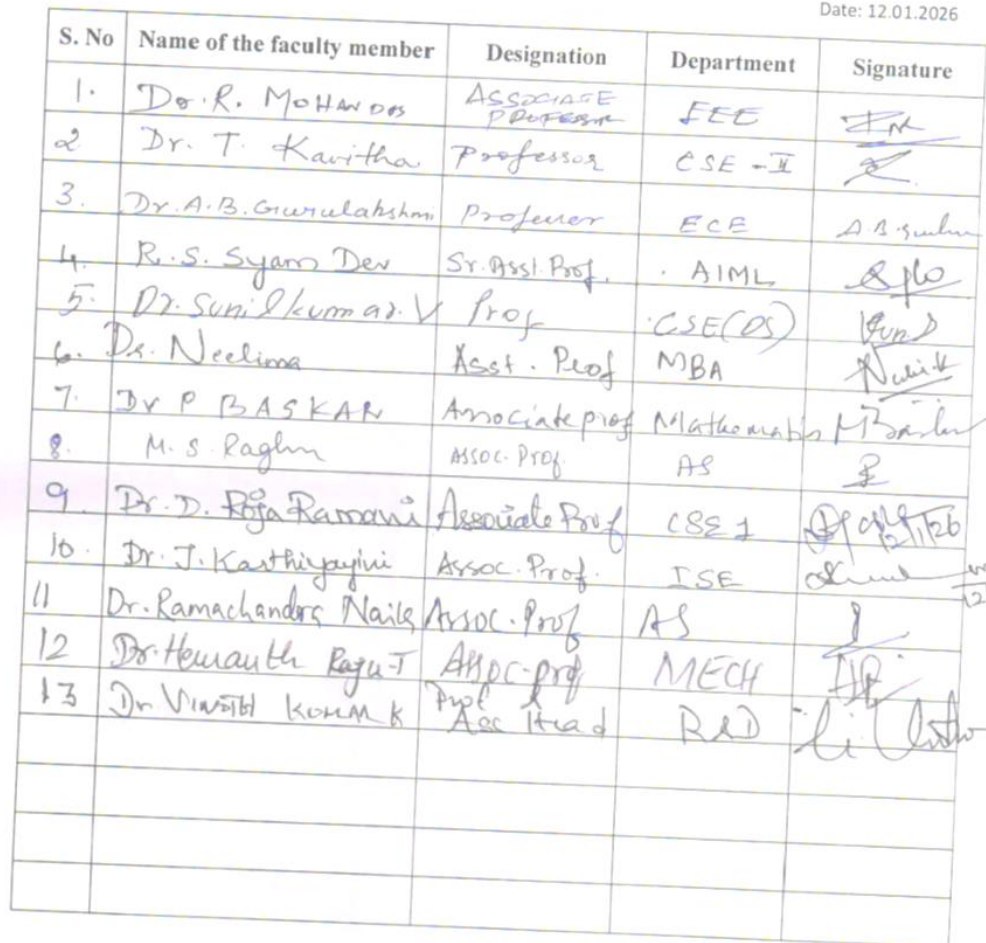 Date: 12.01.2026
S. No Name of the faculty member Designation Department Signature
1. Dr. R. MOHANDOS ASSOCIATE PROFESSOR EEE
2 Dr. T. Kavitha Professor CSE - II
3. Dr. A.B. Gurulakshmi Professor ECE
4. R. S. Syam Dev Sr. Asst. Prof. AIML
5. Dr. Sunilkumar. V Prof CSE(DS)
6. Dr. Neelima Asst. Prof MBA
7. Dr P BASKAR Associate prof Mathematis
8. M. S. Raghu Assoc. Prof. AS
9. Dr. D. Roja Ramani Associate Prof CSE 1 12/1/26
10. Dr. J. Karthiyayini Assoc. Prof. ISE
11 Dr. Ramachandra Naik Assoc. Prof AS
12 Dr. Hemanth Raju. T Assoc. prof MECH
13 Dr Vinoth Kumar K Prof & Head R&D